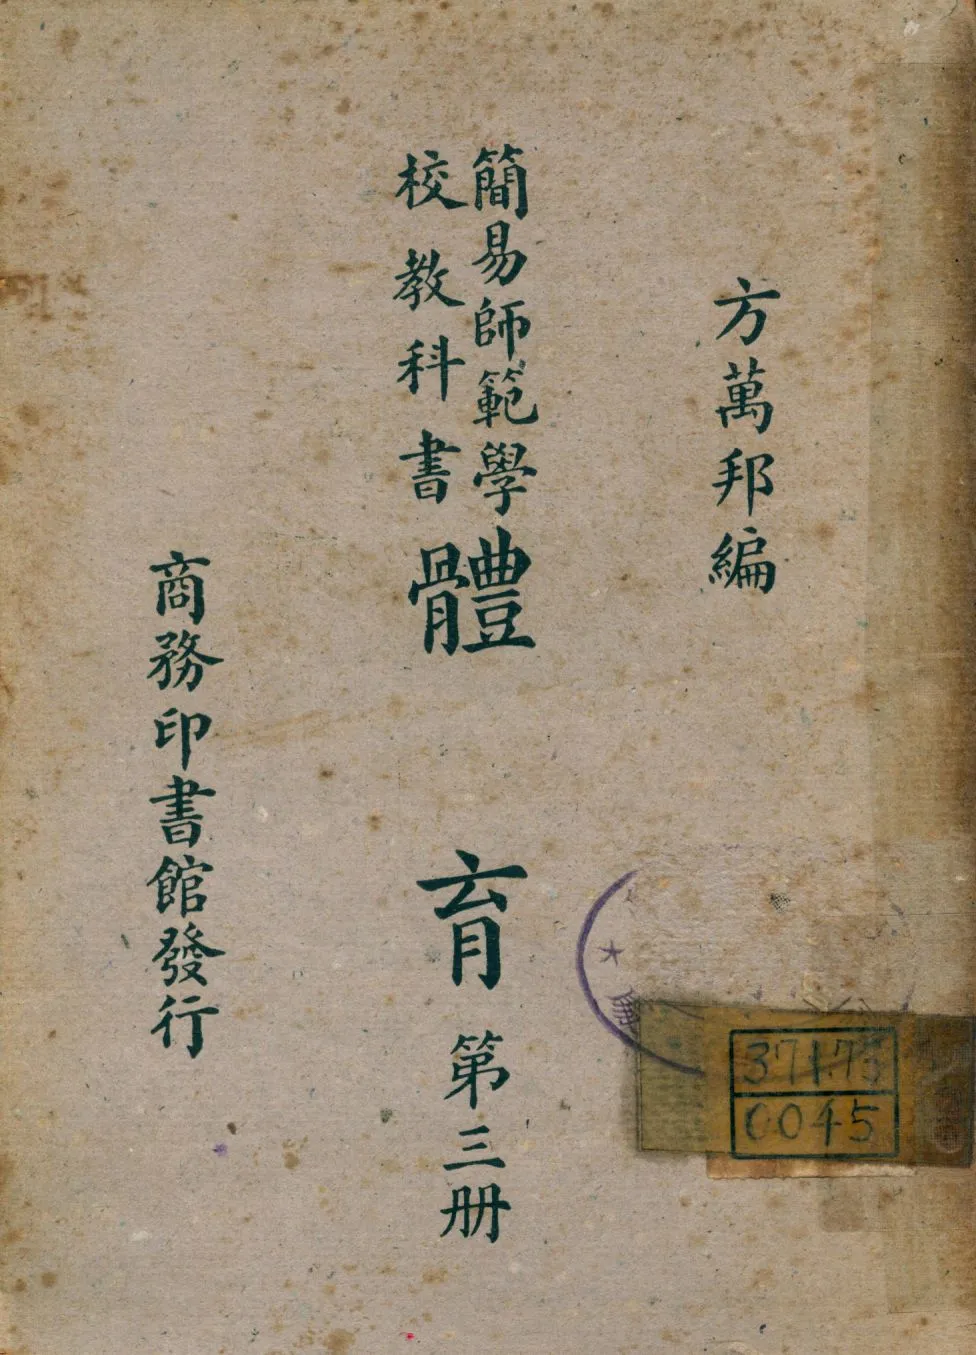 方萬邦編
簡易師範學
校教科書
體育 第三册
商務印書館發行
371.75
0045